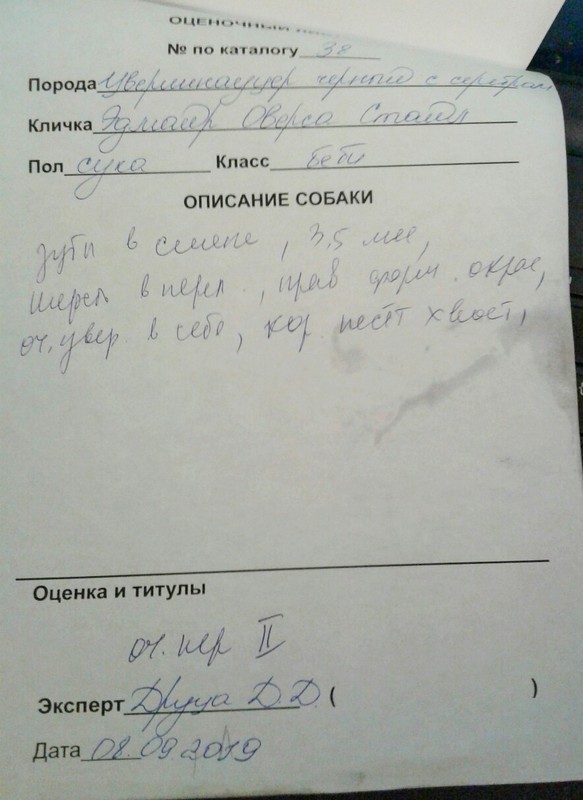 ОЦЕНОЧНЫЙ
№ по каталогу 38
Порода Цверминауцер черный с серебром
Кличка Эдмаир Оверса Стайл
Пол сука Класс беби
ОПИСАНИЕ СОБАКИ
зубы в смене, 3,5 мес,
шерсть в перел., прав форм. окрас,
оч. увер. в себе, хор. несёт хвост,
Оценка и титулы
оч. пер II
Эксперт Друца Д.Д. ( )
Дата 08.09.2019